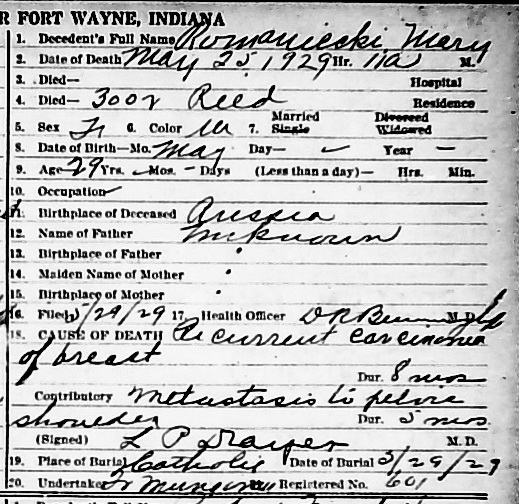 R FORT WAYNE, INDIANA
1. Decedent's Full Name Romaniecki Mary
2. Date of Death May 25, 1929 Hr. 11 a M.
3. Died— Hospital
4. Died— 3002 Reed Residence
5. Sex F 6. Color W 7. Married Single Divorced Widowed
8. Date of Birth—Mo. May Day— – Year –
9. Age 29 Yrs. – Mos. – Days (Less than a day)— Hrs. Min.
10. Occupation
11. Birthplace of Deceased Russia
12. Name of Father Unknown
13. Birthplace of Father "
14. Maiden Name of Mother "
15. Birthplace of Mother "
16. Filed 5/29/29 17. Health Officer M. D.
18. CAUSE OF DEATH Recurrent Carcinoma
of breast
Dur. 8 mos
Contributory Metastasis to pelvis
shoulder Dur. 5 mos.
(Signed) L P M. D.
19. Place of Burial Catholic Date of Burial 5/29/29
20. Undertaker Registered No. 601